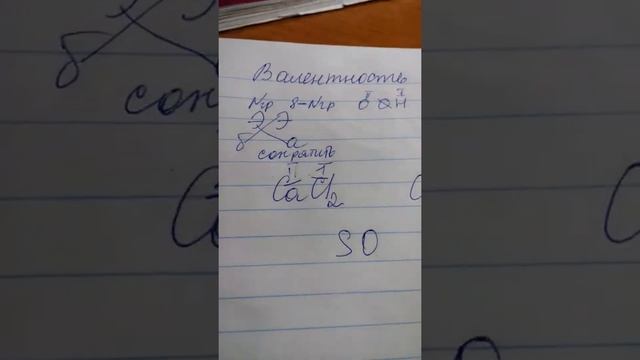 Валентность
Nгр 8-Nгр II O I H
Э Э
б а
сократить
II I
CaCl2
SO